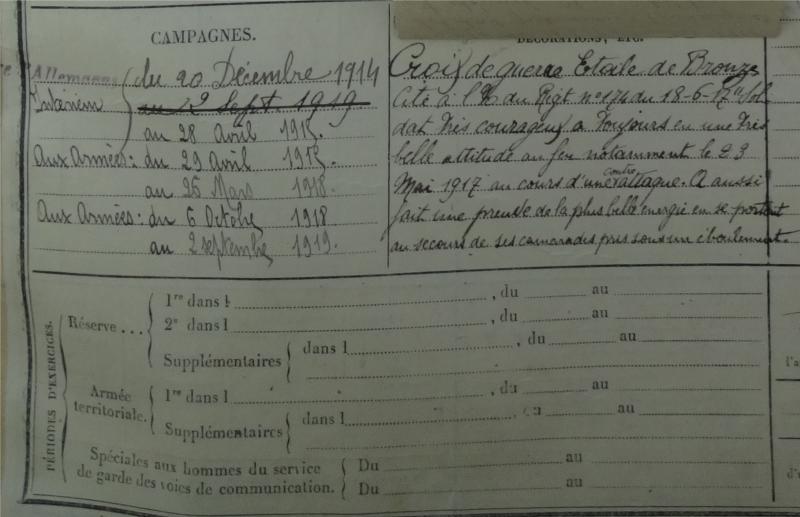 CAMPAGNES.
Allemagne du 20 Décembre 1914
Intérieur au 2 Sept. 1919.
au 28 Avril 1915.
Aux Armées: du 29 Avril 1915.
au 26 Mars 1918.
Aux Armées: du 6 Octobre 1918
au 2 septembre 1919.
DÉCORATIONS, ETC.
Croix de guerre Etoile de Bronze
Cité à l'O. du Régt n° 174 du 18-6-17 "Sol
dat très courageux a toujours eu une très
belle attitude au feu notamment le 23
Mai 1917 au cours d'une contre attaque. A aussi
fait une preuve de la plus belle énergie en se portant
au secours de ses camarades pris sous un éboulement.
PÉRIODES D'EXERCICES.
Réserve ...
1re dans l , du au
2e dans l , du au
Supplémentaires dans l , du au
Armée
territoriale.
1re dans l , du au
Supplémentaires dans l , du au
Spéciales aux hommes du service
de garde des voies de communication.
Du au
Du au